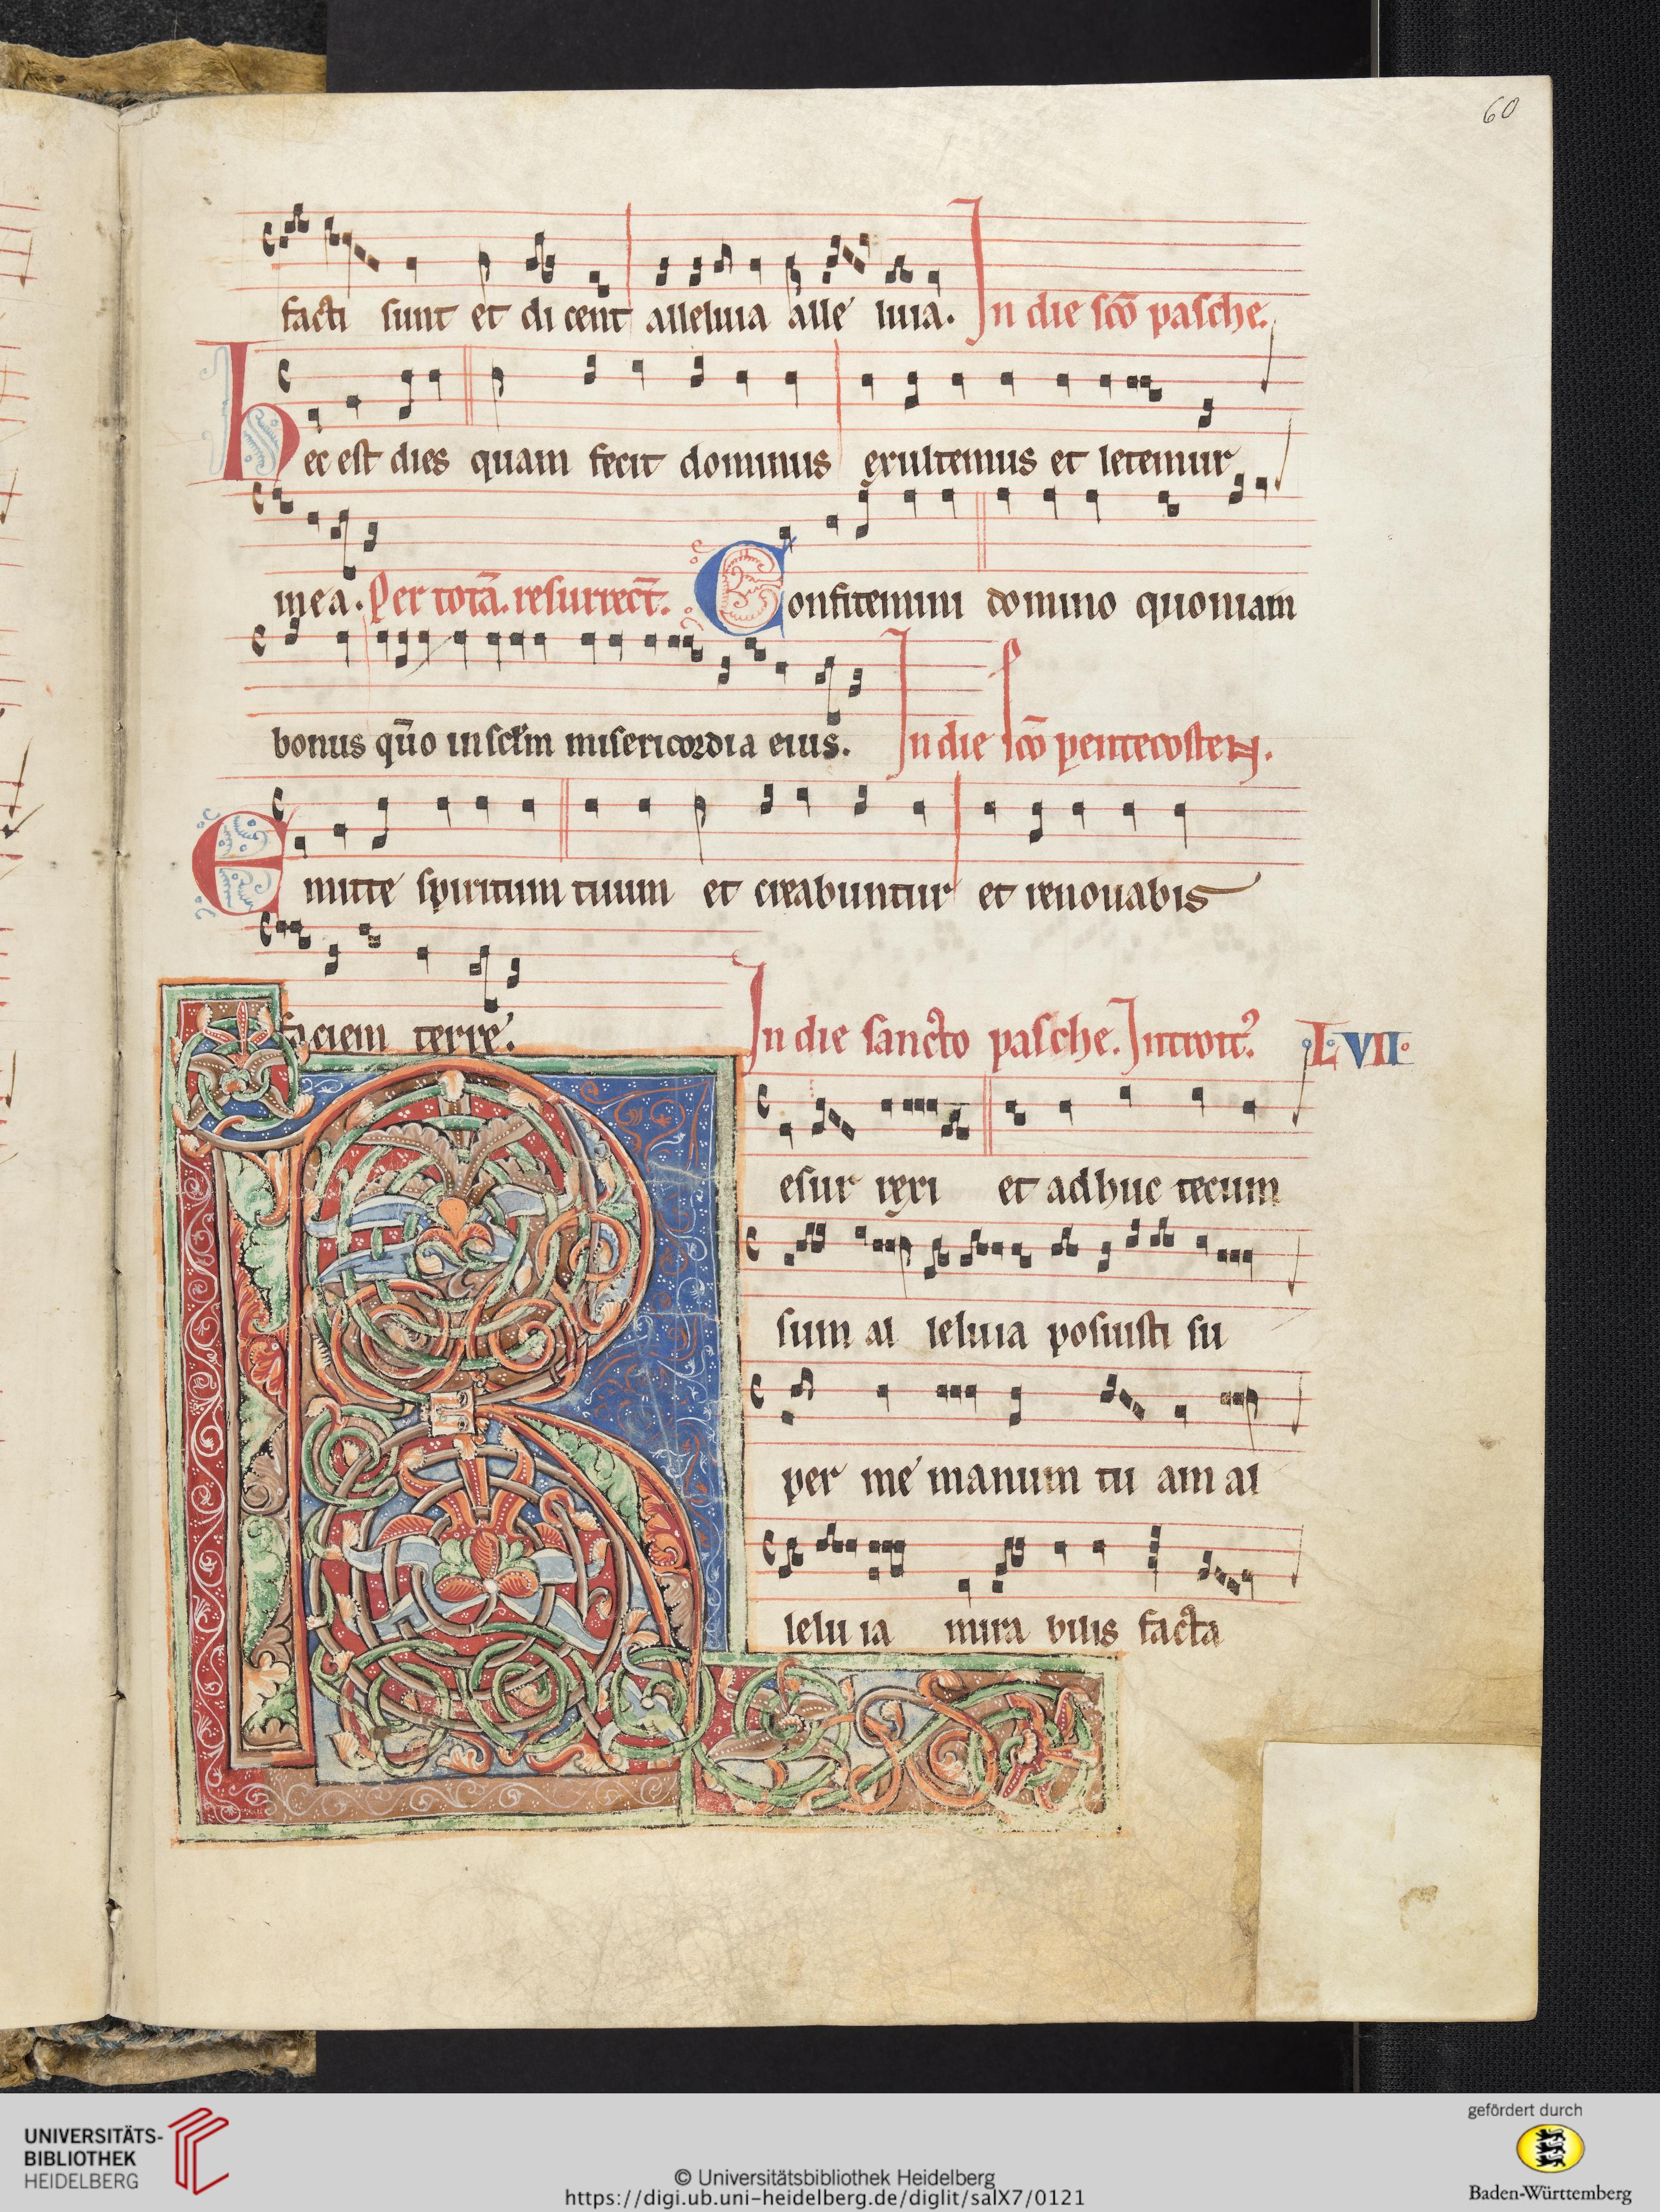 60
facti sunt et di cent alleluia alle luia. In die sc̄o pasche.
Hec est dies quam fecit dominus exultemus et letemur
in ea. Per totā. resurrect̄. Confitemini domino quoniam
bonus qūo in scl̄m misericordia eius. In die sc̄o pentecosten.
Emitte spiritum tuum et creabuntur et renouabis
faciem terre. In die sancto pasche. Introit᾿. LVII.
Resur rexi et adhuc tecum
sum al leluia posuisti su
per me manum tu am al
lelu ia mira bilis facta
UNIVERSITÄTS-
BIBLIOTHEK
HEIDELBERG
© Universitätsbibliothek Heidelberg
https://digi.ub.uni-heidelberg.de/diglit/salX7/0121
gefördert durch
Baden-Württemberg